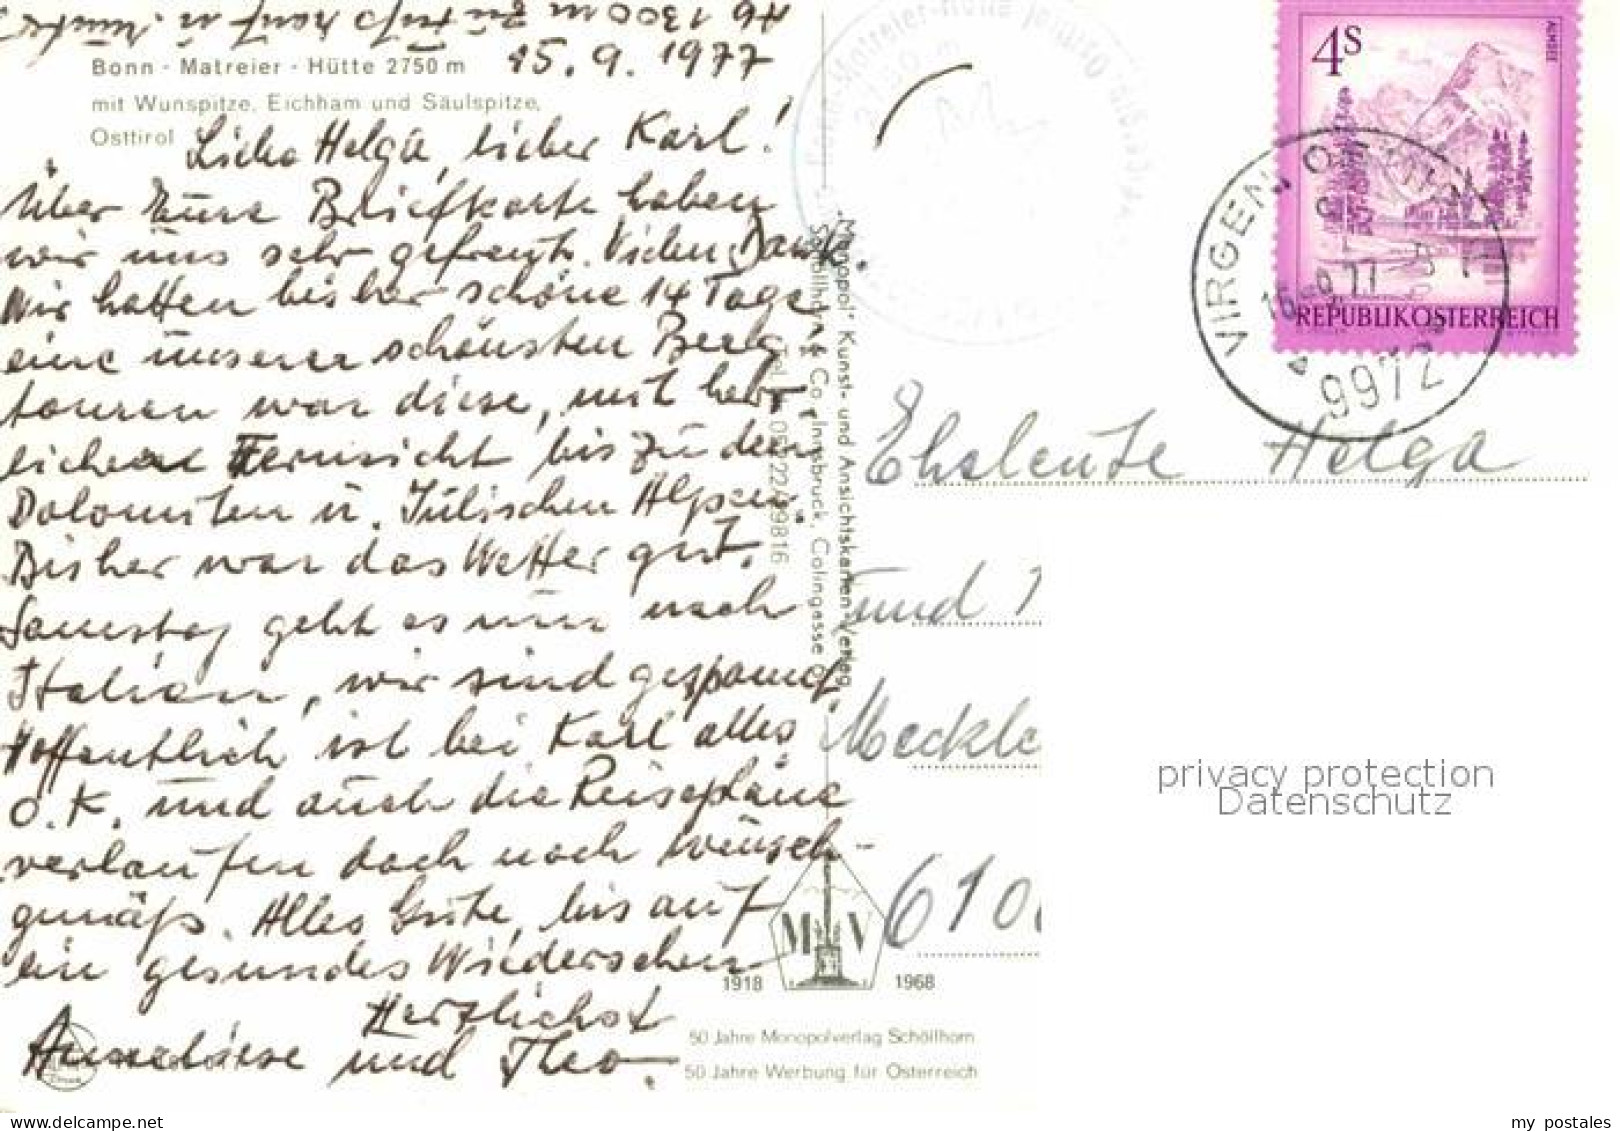 Ab 1300 m zu Fuß hauf u. runter.
15.9.1977
Bonn - Matreier - Hütte 2750 m
mit Wunspitze, Eichham und Säulspitze,
Osttirol
Liebe Helga, lieber Karl!
Über Eure Briefkarte haben
wir uns sehr gefreut. Vielen Dank.
Wir hatten bisher schöne 14 Tage
eine unserer schönsten Berg-
touren war diese, mit herr-
licher Fernsicht bis zu den
Dolomiten u. Julischen Alpen.
Bisher war das Wetter gut.
Samstag geht es nun nach
Italien, wir sind gespannt.
Hoffentlich ist bei Karl alles
O.K. und auch die Reisepläne
verlaufen doch noch wünsch-
gemäß. Alles Gute, bis auf
ein gesundes Wiedersehen
Herzlichst
Anneliese und Theo.
"Monopol" Kunst- und Ansichtskarten-Verlag
Schöllhorn & Co., Innsbruck, Colingasse
M V
1918 1968
50 Jahre Monopolverlag Schöllhorn
50 Jahre Werbung für Österreich
4S
ALMSEE
REPUBLIK ÖSTERREICH
VIRGEN, OSTTIROL
9972
Eheleute Helga
und
Meckle
610
privacy protection
Datenschutz
my postales